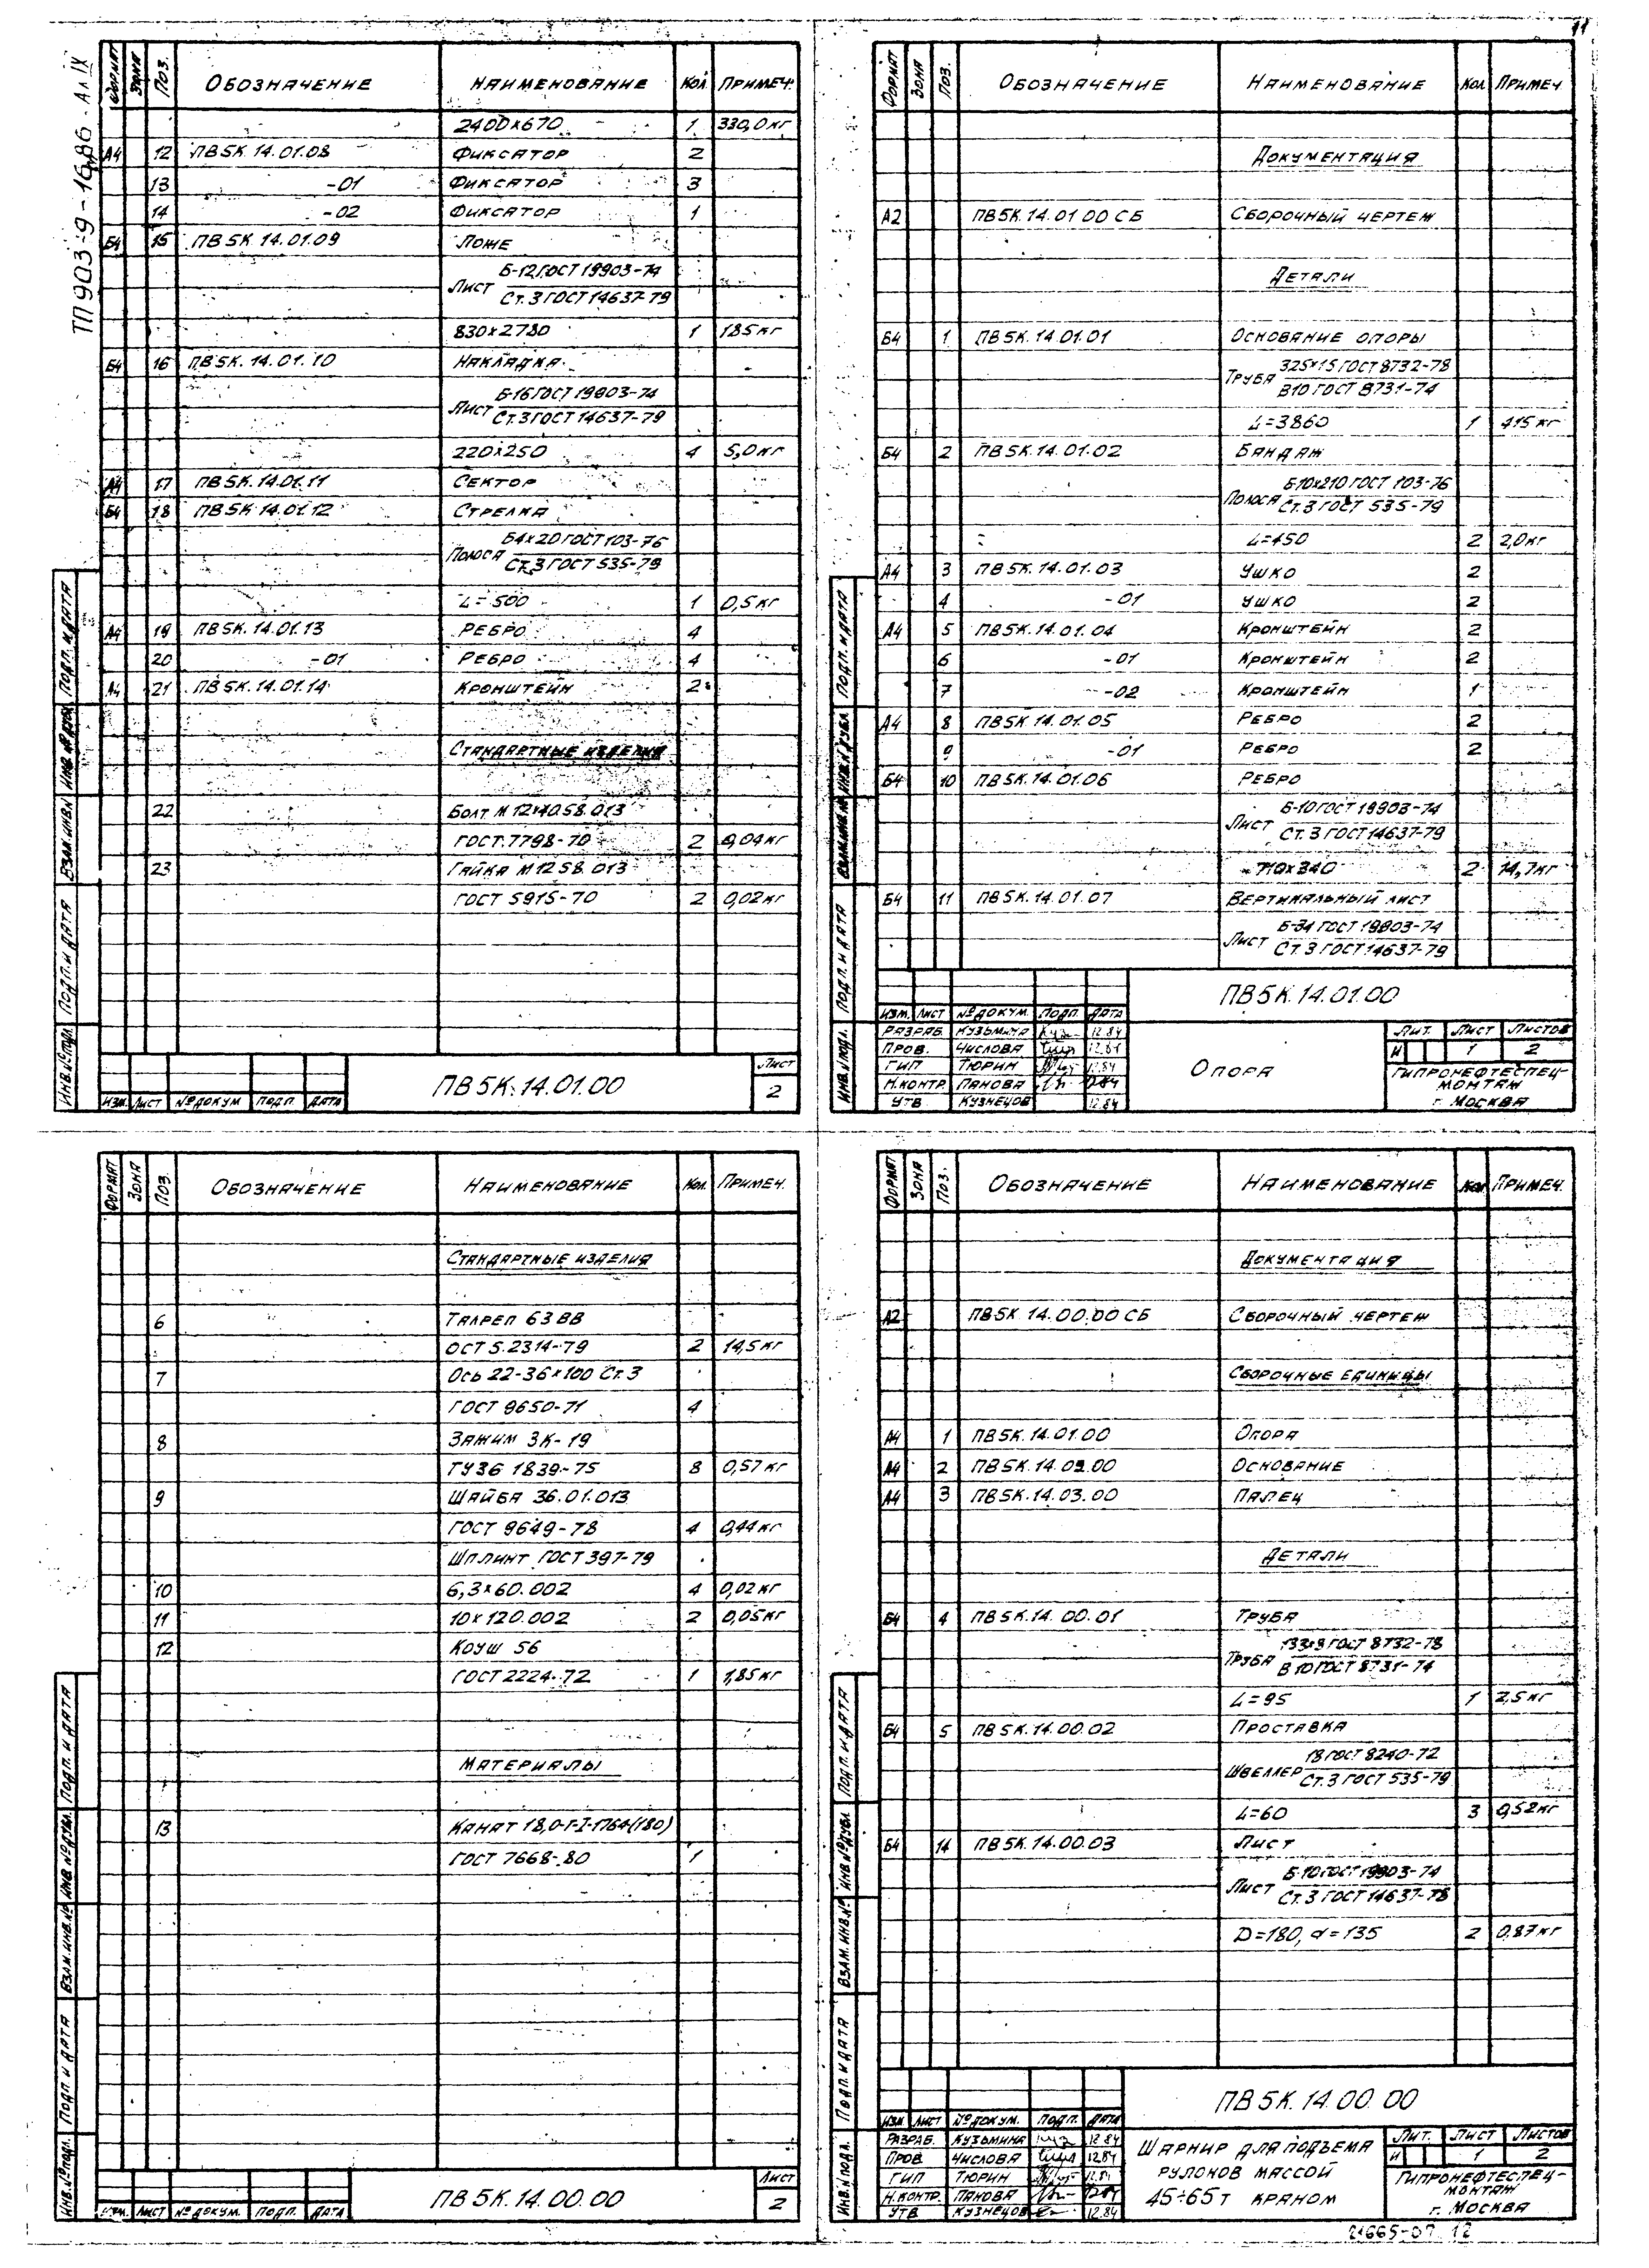 11
ТП 903-9-16.86. Ал. IX
ФОРМАТ ЗОНА ПОЗ. ОБОЗНАЧЕНИЕ НАИМЕНОВАНИЕ КОЛ ПРИМЕЧ.
2400×670 1 330,0 кг
А4 12 ПВ5К.14.01.08 ФИКСАТОР 2
13 -01 ФИКСАТОР 3
14 -02 ФИКСАТОР 1
Б4 15 ПВ5К.14.01.09 ЛОЖЕ
Лист Б-12 ГОСТ 19903-74
Ст.3 ГОСТ 14637-79
830×2780 1 185 кг
Б4 16 ПВ5К.14.01.10 НАКЛАДКА
Лист Б-16 ГОСТ 19903-74
Ст.3 ГОСТ 14637-79
220×250 4 5,0 кг
А4 17 ПВ5К.14.01.11 СЕКТОР
Б4 18 ПВ5К.14.01.12 СТРЕЛКА
Полоса Б4×20 ГОСТ 103-76
Ст.3 ГОСТ 535-79
L=500 1 0,5 кг
А4 19 ПВ5К.14.01.13 РЕБРО 4
20 -01 РЕБРО 4
А4 21 ПВ5К.14.01.14 КРОНШТЕЙН 2
СТАНДАРТНЫЕ ИЗДЕЛИЯ
22 БОЛТ М12×40.58.013
ГОСТ 7798-70 2 0,04 кг
23 ГАЙКА М12 58.013
ГОСТ 5915-70 2 0,02 кг
ИНВ.№ПОДЛ. ПОДП.И ДАТА ВЗАМ.ИНВ.№ ИНВ.№ДУБЛ. ПОДП.И ДАТА
ИЗМ. ЛИСТ №ДОКУМ ПОДП ДАТА
ПВ5К.14.01.00
ЛИСТ
2
ФОРМАТ ЗОНА ПОЗ. ОБОЗНАЧЕНИЕ НАИМЕНОВАНИЕ КОЛ ПРИМЕЧ
ДОКУМЕНТАЦИЯ
А2 ПВ5К.14.01 00 СБ СБОРОЧНЫЙ ЧЕРТЕЖ
ДЕТАЛИ
Б4 1 ПВ5К.14.01.01 ОСНОВАНИЕ ОПОРЫ
Труба 325×15 ГОСТ 8732-78
В10 ГОСТ 8731-74
L=3860 1 415 кг
Б4 2 ПВ5К.14.01.02 БАНДАЖ
Полоса Б10×210 ГОСТ 103-76
Ст.3 ГОСТ 535-79
L=450 2 2,0 кг
А4 3 ПВ5К.14.01.03 УШКО 2
4 -01 УШКО 2
А4 5 ПВ5К.14.01.04 КРОНШТЕЙН 2
6 -01 КРОНШТЕЙН 2
7 -02 КРОНШТЕЙН 1
А4 8 ПВ5К.14.01.05 РЕБРО 2
9 -01 РЕБРО 2
Б4 10 ПВ5К.14.01.06 РЕБРО
Лист Б-10 ГОСТ 19903-74
Ст.3 ГОСТ 14637-79
710×340 2 14,7 кг
Б4 11 ПВ5К.14.01.07 ВЕРТИКАЛЬНЫЙ ЛИСТ
Лист ГОСТ 19903-74
Ст.3 ГОСТ 14637-79
ИНВ.№ПОДЛ. ПОДП.И ДАТА ВЗАМ.ИНВ.№ ИНВ.№ДУБЛ ПОДП.И ДАТА
ПВ5К.14.01.00
ИЗМ. ЛИСТ №ДОКУМ. ПОДП. ДАТА
РАЗРАБ. КУЗЬМИНА 12.84
ПРОВ. ЧИСЛОВА 12.84
ГИП ТЮРИН 12.84
Н.КОНТР. ПАНОВА 12.84
УТВ КУЗНЕЦОВ 12.84
ОПОРА
ЛИТ. ЛИСТ ЛИСТОВ
И 1 2
ГИПРОНЕФТЕСПЕЦ-
МОНТАЖ
г. МОСКВА
ФОРМАТ ЗОНА ПОЗ ОБОЗНАЧЕНИЕ НАИМЕНОВАНИЕ КОЛ. ПРИМЕЧ.
СТАНДАРТНЫЕ ИЗДЕЛИЯ
6 ТАЛРЕП 63 ВВ
ОСТ 5.2314-79 2 14,5 кг
7 ОСЬ 22-36×100 Ст.3
ГОСТ 9650-71 4
8 ЗАЖИМ ЗК-19
ТУ36 1839-75 8 0,57 кг
9 ШАЙБА 36.01.013
ГОСТ 9649-78 4 0,44 кг
ШПЛИНТ ГОСТ 397-79
10 6,3×60.002 4 0,02 кг
11 10×120.002 2 0,05 кг
12 КОУШ 56
ГОСТ 2224-72 1 1,85 кг
МАТЕРИАЛЫ
13 КАНАТ 18,0-Г-I-1764(180)
ГОСТ 7668-80 1
ИНВ.№ПОДЛ. ПОДП. И ДАТА ВЗАМ.ИНВ.№ ИНВ №ДУБЛ. ПОДП. И ДАТА
ИЗМ. ЛИСТ №ДОКУМ. ПОДП. ДАТА
ПВ5К.14.00.00
ЛИСТ
2
ФОРМАТ ЗОНА ПОЗ. ОБОЗНАЧЕНИЕ НАИМЕНОВАНИЕ КОЛ ПРИМЕЧ.
ДОКУМЕНТАЦИЯ
А2 ПВ5К 14.00.00 СБ СБОРОЧНЫЙ ЧЕРТЕЖ
СБОРОЧНЫЕ ЕДИНИЦЫ
А4 1 ПВ5К.14.01.00 ОПОРА
А4 2 ПВ5К.14.02.00 ОСНОВАНИЕ
А4 3 ПВ5К.14.03.00 ПАЛЕЦ
ДЕТАЛИ
Б4 4 ПВ5К.14.00.01 ТРУБА
Труба ГОСТ 8732-78
В10 ГОСТ 8731-74
L=95 1 2,5 кг
Б4 5 ПВ5К.14.00.02 ПРОСТАВКА
Швеллер 18 ГОСТ 8240-72
Ст.3 ГОСТ 535-79
L=60 3 0,52 кг
Б4 14 ПВ5К.14.00.03 ЛИСТ
Лист Б-10 ГОСТ 19903-74
Ст.3 ГОСТ 14637-78
D=180, d=135 2 0.87 кг
ИНВ.№ПОДЛ. ПОДП. И ДАТА ВЗАМ.ИНВ.№ ИНВ №ДУБЛ ПОДП. И ДАТА
ПВ5К.14.00 00
ИЗМ ЛИСТ №ДОКУМ. ПОДП. ДАТА
РАЗРАБ. КУЗЬМИНА 12.84
ПРОВ ЧИСЛОВА 12.84
ГИП ТЮРИН 12.84
Н.КОНТР. ПАНОВА 12.84
УТВ КУЗНЕЦОВ 12.84
ШАРНИР ДЛЯ ПОДЪЕМА
РУЛОНОВ МАССОЙ
45÷65 т КРАНОМ
ЛИТ. ЛИСТ ЛИСТОВ
И 1 2
ГИПРОНЕФТЕСПЕЦ-
МОНТАЖ
г. МОСКВА
21665-07 12